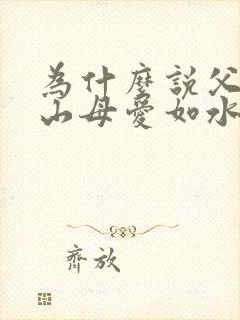 為什麼説父
山母愛如水
齊放